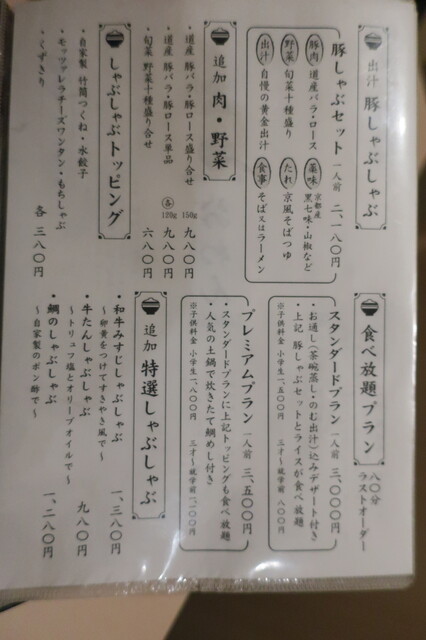 出汁 豚しゃぶしゃぶ
豚しゃぶセット 一人前 二、一八〇円
豚肉 道産バラ・ロース
野菜 旬菜十種盛り
出汁 自慢の黄金出汁
薬味 京都産 黒七味・山椒など
たれ 京風そばつゆ
食事 そば又はラーメン
追加 肉・野菜
・道産 豚バラ・豚ロース盛り合せ 150g 九八〇円
・道産 豚バラ・豚ロース単品 各120g 九八〇円
・旬菜 野菜十種盛り合せ 六八〇円
しゃぶしゃぶトッピング
・自家製 竹筒つくね・水餃子
・モッツァレラチーズワンタン・もちしゃぶ
・くずきり
各 三八〇円
食べ放題プラン 八〇分 ラストオーダー
スタンダードプラン 一人前 三、〇〇〇円
・お通し(茶碗蒸し・のむ出汁)込みデザート付き
・上記 豚しゃぶセットとライスが食べ放題
※子供料金 小学生一、五〇〇円 三才〜就学前 八〇〇円
プレミアムプラン 一人前 三、五〇〇円
・スタンダードプランに上記トッピングも食べ放題
・人気の土鍋で炊きたて鯛めし付き
※子供料金 小学生一、八〇〇円 三才〜就学前一、一〇〇円
追加 特選しゃぶしゃぶ
・和牛みすじしゃぶしゃぶ 一、三八〇円
〜卵黄をつけてすきやき風で〜
・牛たんしゃぶしゃぶ 九八〇円
〜トリュフ塩とオリーブオイルで〜
・鯛のしゃぶしゃぶ 一、二八〇円
〜自家製のポン酢で〜